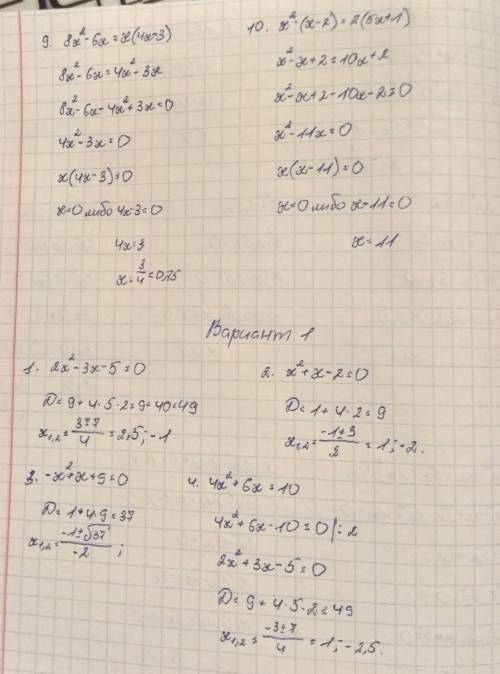 9. 8x²-6x=x(4x-3)
8x²-6x=4x²-3x
8x²-6x-4x²+3x=0
4x²-3x=0
x(4x-3)=0
x=0 либо 4x-3=0
4x=3
x=3/4=0,75
10. x²-(x-2)=2(5x+1)
x²-x+2=10x+2
x²-x+2-10x-2=0
x²-11x=0
x(x-11)=0
x=0 либо x-11=0
x=11
Вариант 1
1. 2x²-3x-5=0
D=9+4·5·2=9+40=49
x₁,₂=(3±7)/4=2,5; -1
2. x²+x-2=0
D=1+4·2=9
x₁,₂=(-1±3)/2=1; -2.
3. -x²+x+9=0
D=1+4·9=37
x₁,₂=(-1±√37)/-2;
4. 4x²+6x=10
4x²+6x-10=0|:2
2x²+3x-5=0
D=9+4·5·2=49
x₁,₂=(-3±7)/4=1; -2,5.